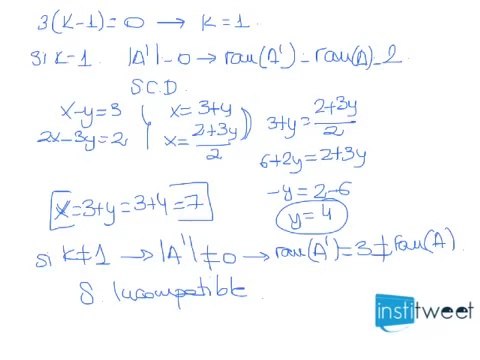 3(K-1)=0 → K=1
Si K=1 |A'|=0 → ran(A')=ran(A)=2
S.C.D
x-y=3
2x-3y=2
x=3+y
x=2+3y/2
3+y=2+3y/2
6+2y=2+3y
-y=2-6
y=4
x=3+y=3+4=7
Si K≠1 → |A'|≠0 → ran(A')=3≠ran(A)
S. Incompatible
institweet